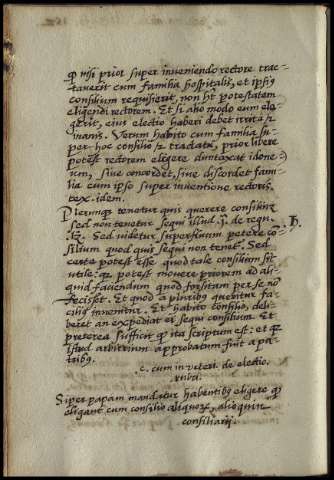 q̃ nisi prior super inveniendo rectore trac-
taverit cum familia hospitalis, et ipsius
consilium requisierit, non ht potestatem
eligendi rectorem. Et si alio modo eum ele-
gerit, eius electio haberi debet irrita &
inanis. Verum habito cum familia su-
per hoc consilio & tractatu, prior libere
potest rectorem eligere duntaxat idone-
um, sive concordet, sive discordet fami-
lia cum ipso super inventione rectoris.
tex. idem.
Plerunque tenetur quis querere consilium
sed non tenetur sequi illud. de re
Sed videtur superfluum petere co-
silium quod quis sequi non tenet. Sed
certe potest esse quod tale consilium sit
utile: q̃ potest movere priorem ad ali-
quid faciendum quod forsitan per se non
fecisset. Et quod a pluribus queritur fa-
cilius invenitur. Et habito consilio, deli-
beret an expediat ei sequi consilium. Et
preterea sufficit q̃ ita scriptum est: et q̃
istud arbitrium approbatum fuit a pa-
tribus.
c. cum in veteri. de electio.
Super papam mandatur habentibus eligere q̃
eligant cum consilio aliquorum, alioquin
consiliarij.